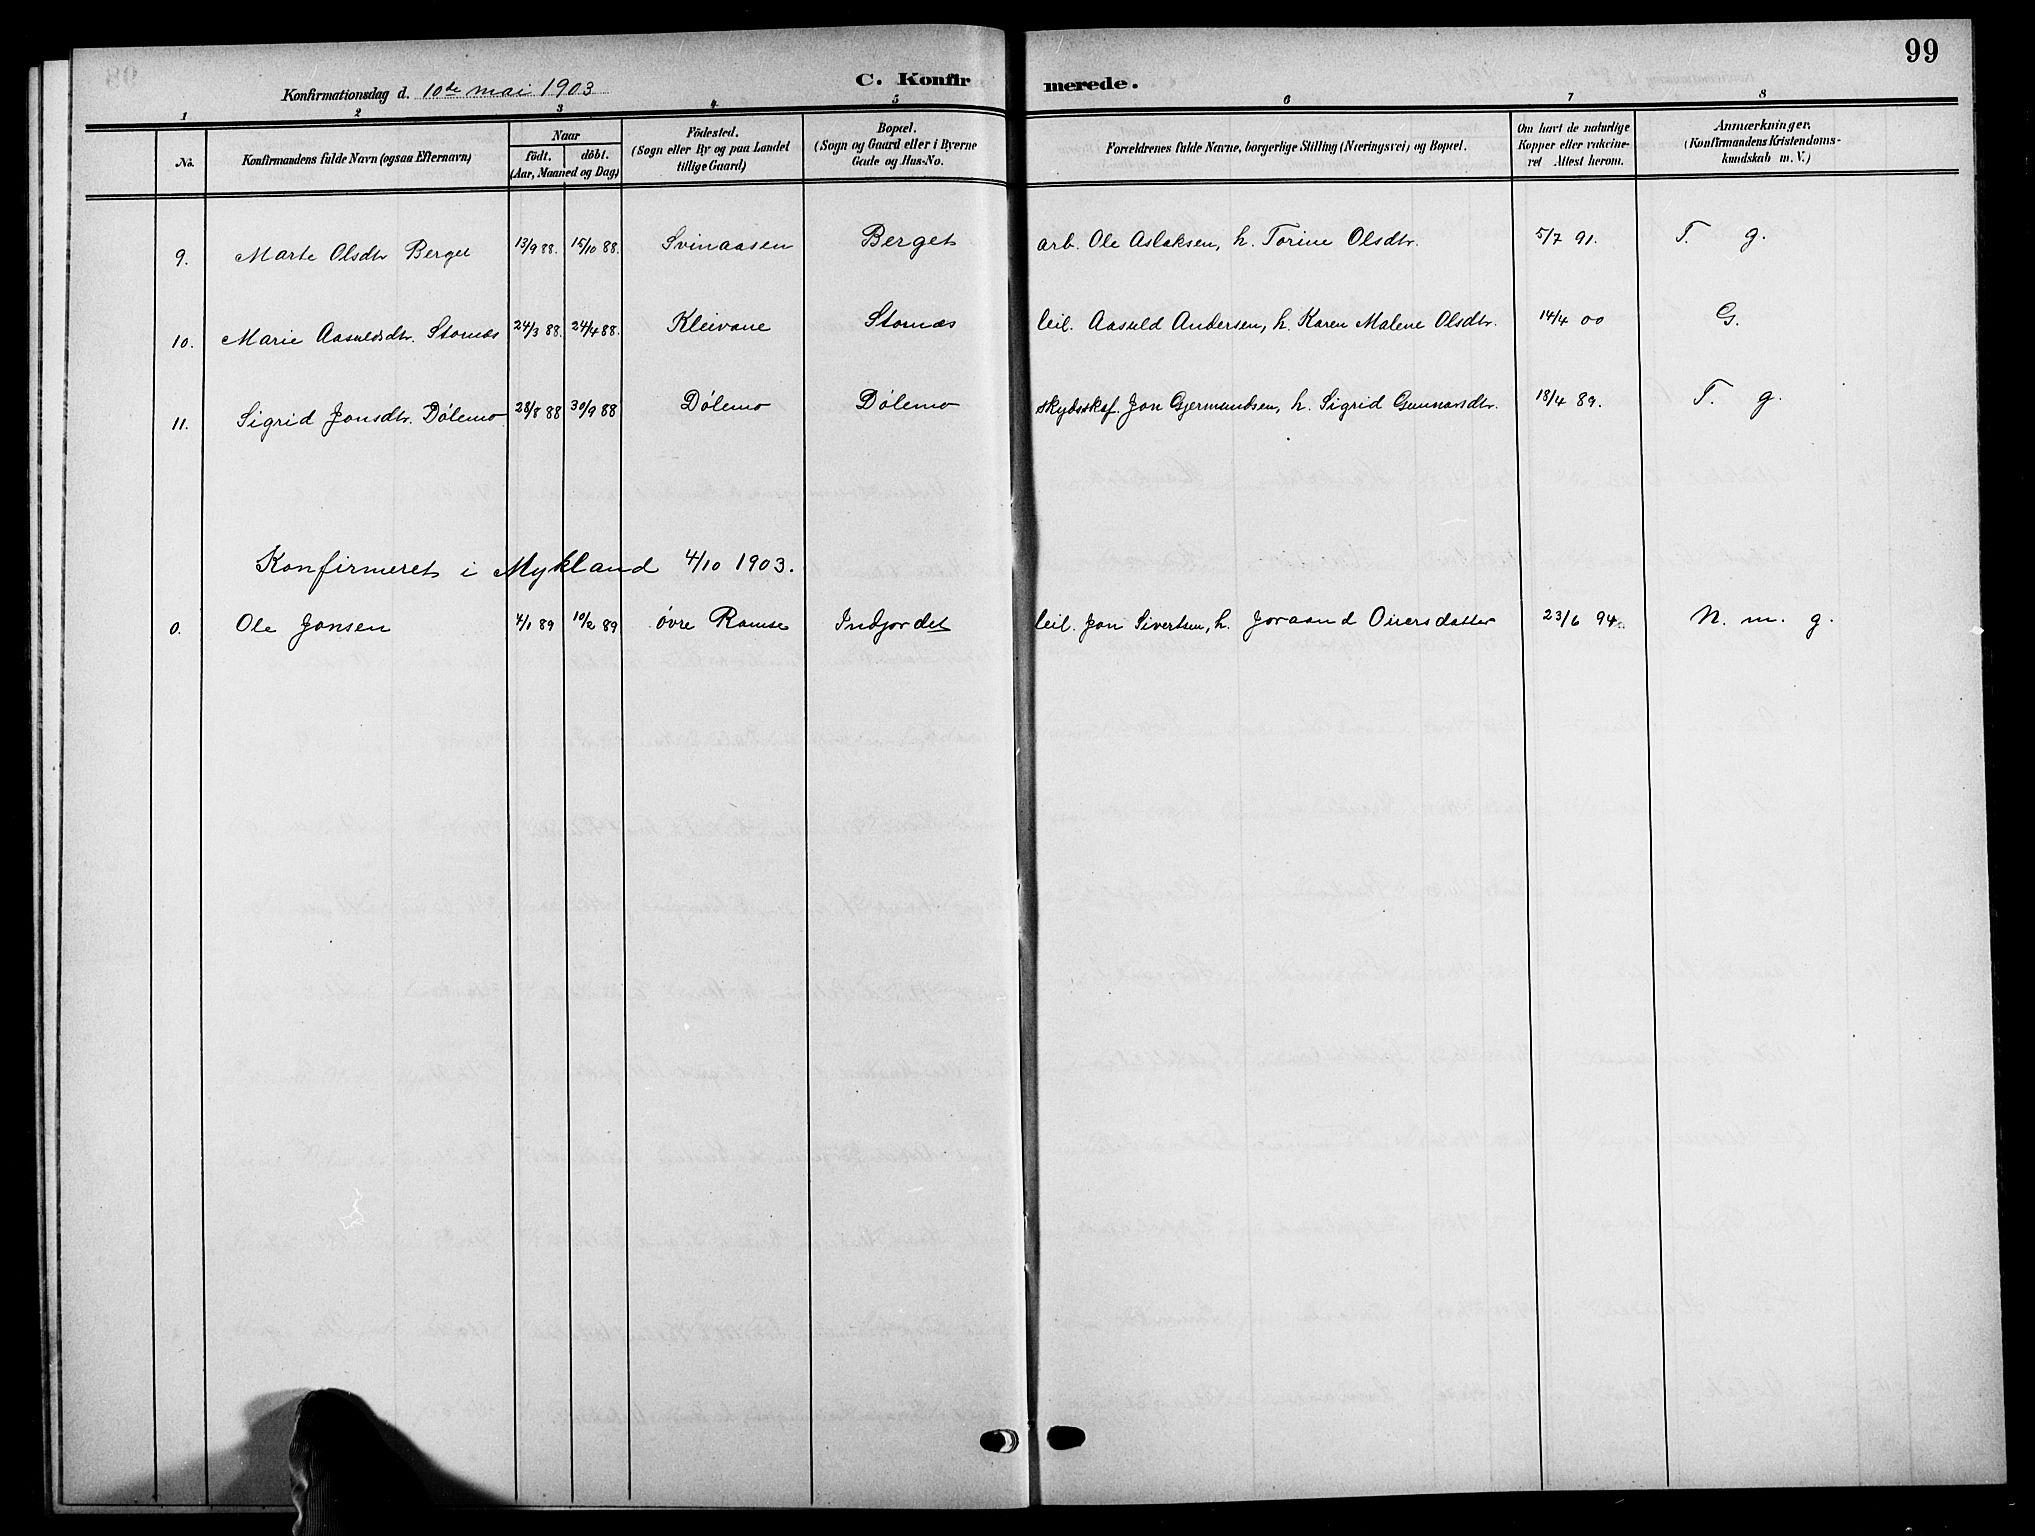 99
Konfirmationsdag d. 10de mai 1903
C. Konfirmerede.
1 2 3 4 5 6 7 8
No. Konfirmandens fulde Navn (ogsaa Efternavn) Naar födt. döbt. (Aar, Maaned og Dag) Födested. (Sogn eller By og paa Landet tillige Gaard) Bopæl. (Sogn og Gaard eller i Byerne Gade og Hus-No. Forældrenes fulde Navne, borgerlige Stilling (Næringsvei) og Bopæl. Om havt de naturlige Kopper eller vakcineret Attest herom. Anmærkninger, (Konfirmandens Kristendomskundskab m. V.)
9. Marte Olsdtr Berget 13/9 88. 15/10 88. Svinaasen Berget arb. Ole Aslaksen, h. Torine Olsdtr. 5/7 91. T. g.
10. Marie Aasuldsdtr. Stornæs 24/3 88. 24/4 88. Kleivane Stornæs leil. Aasuld Andersen, h. Karen Malene Olsdtr. 14/4 00 G.
11. Sigrid Jonsdtr. Dølemo 28/8 88 30/9 88 Dølemo Dølemo skydsskaf. Jon Gjermundsen, h. Sigrid Gunnarsdtr. 18/4 89. T. g.
Konfirmeret i Mykland 4/10 1903.
0. Ole Jonsen 4/1 89 10/2 89 øvre Ramse Indjordet leil. Jon Sivertsen, h. Joraand Oversdatter 23/6 94. N. m. g.